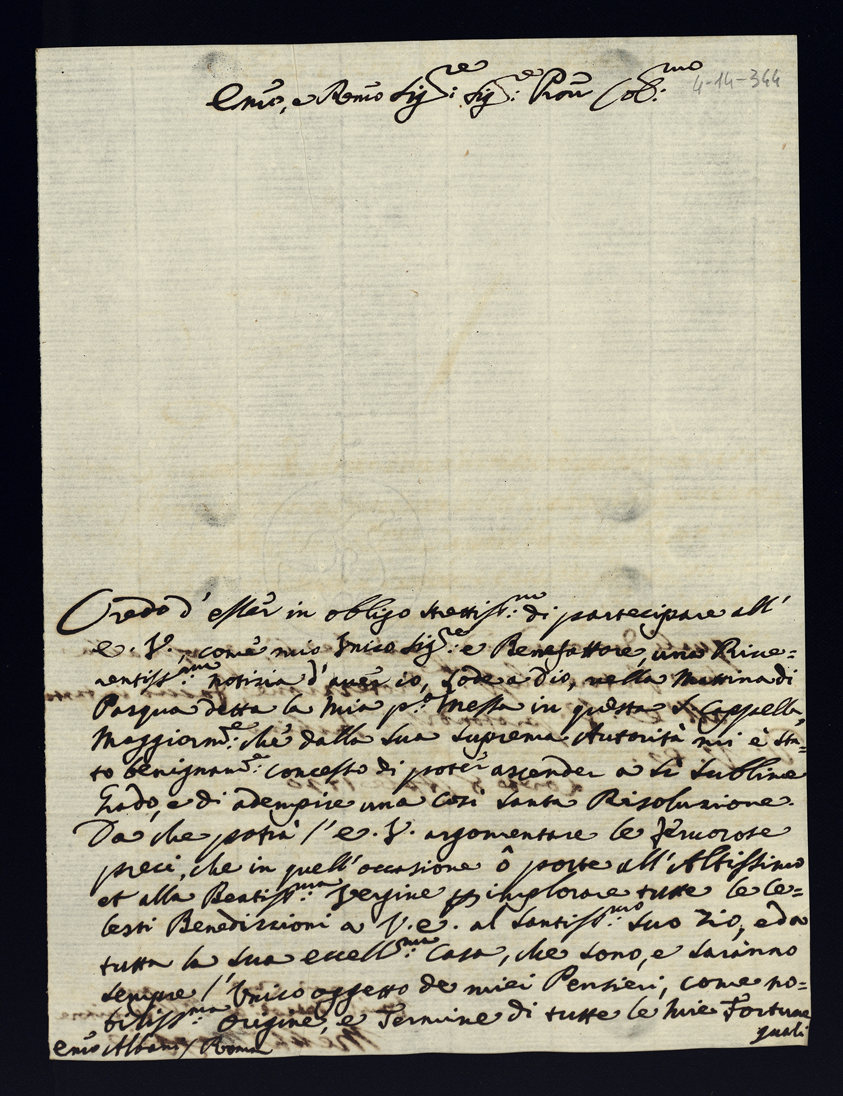 Emo, e Remo Sig.re: Sig.re: Pron Col.mo:
4-14-344
Credo d'esser in obligo strettiss.mo: di partecipare all'
E. V., come mio Vnico Sig.re e Benefattore, una Riue=
rentiss.ma notizia d'auer io, Lode a Dio, nella Mattina di
Pasqua detta la Mia p.a Messa in questa S. Cappella,
Maggiorm.e: che dalla Sua Suprema Autorità mi è sta=
to benignam.e: concesso di poter ascender a sì Sublime
Grado, e di adempire una così Santa Risoluzione.
Da che potrà l'E. V. argomentare le feruorose
preci, che in quell'occasione ô porte all'Altissimo
et alla Beatiss.ma Vergine p implorare tutte le Ce=
lesti Benedizzioni a V. E. al Santiss.mo Suo Zio, ed a
tutta la Sua Eccell.ma Casa, che sono, e saranno
sempre l'Vnico oggetto de miei Pensieri, come no=
biliss.ma Origine, e Termine di tutte le Mie Fortune
quali
Emo Albani / Roma